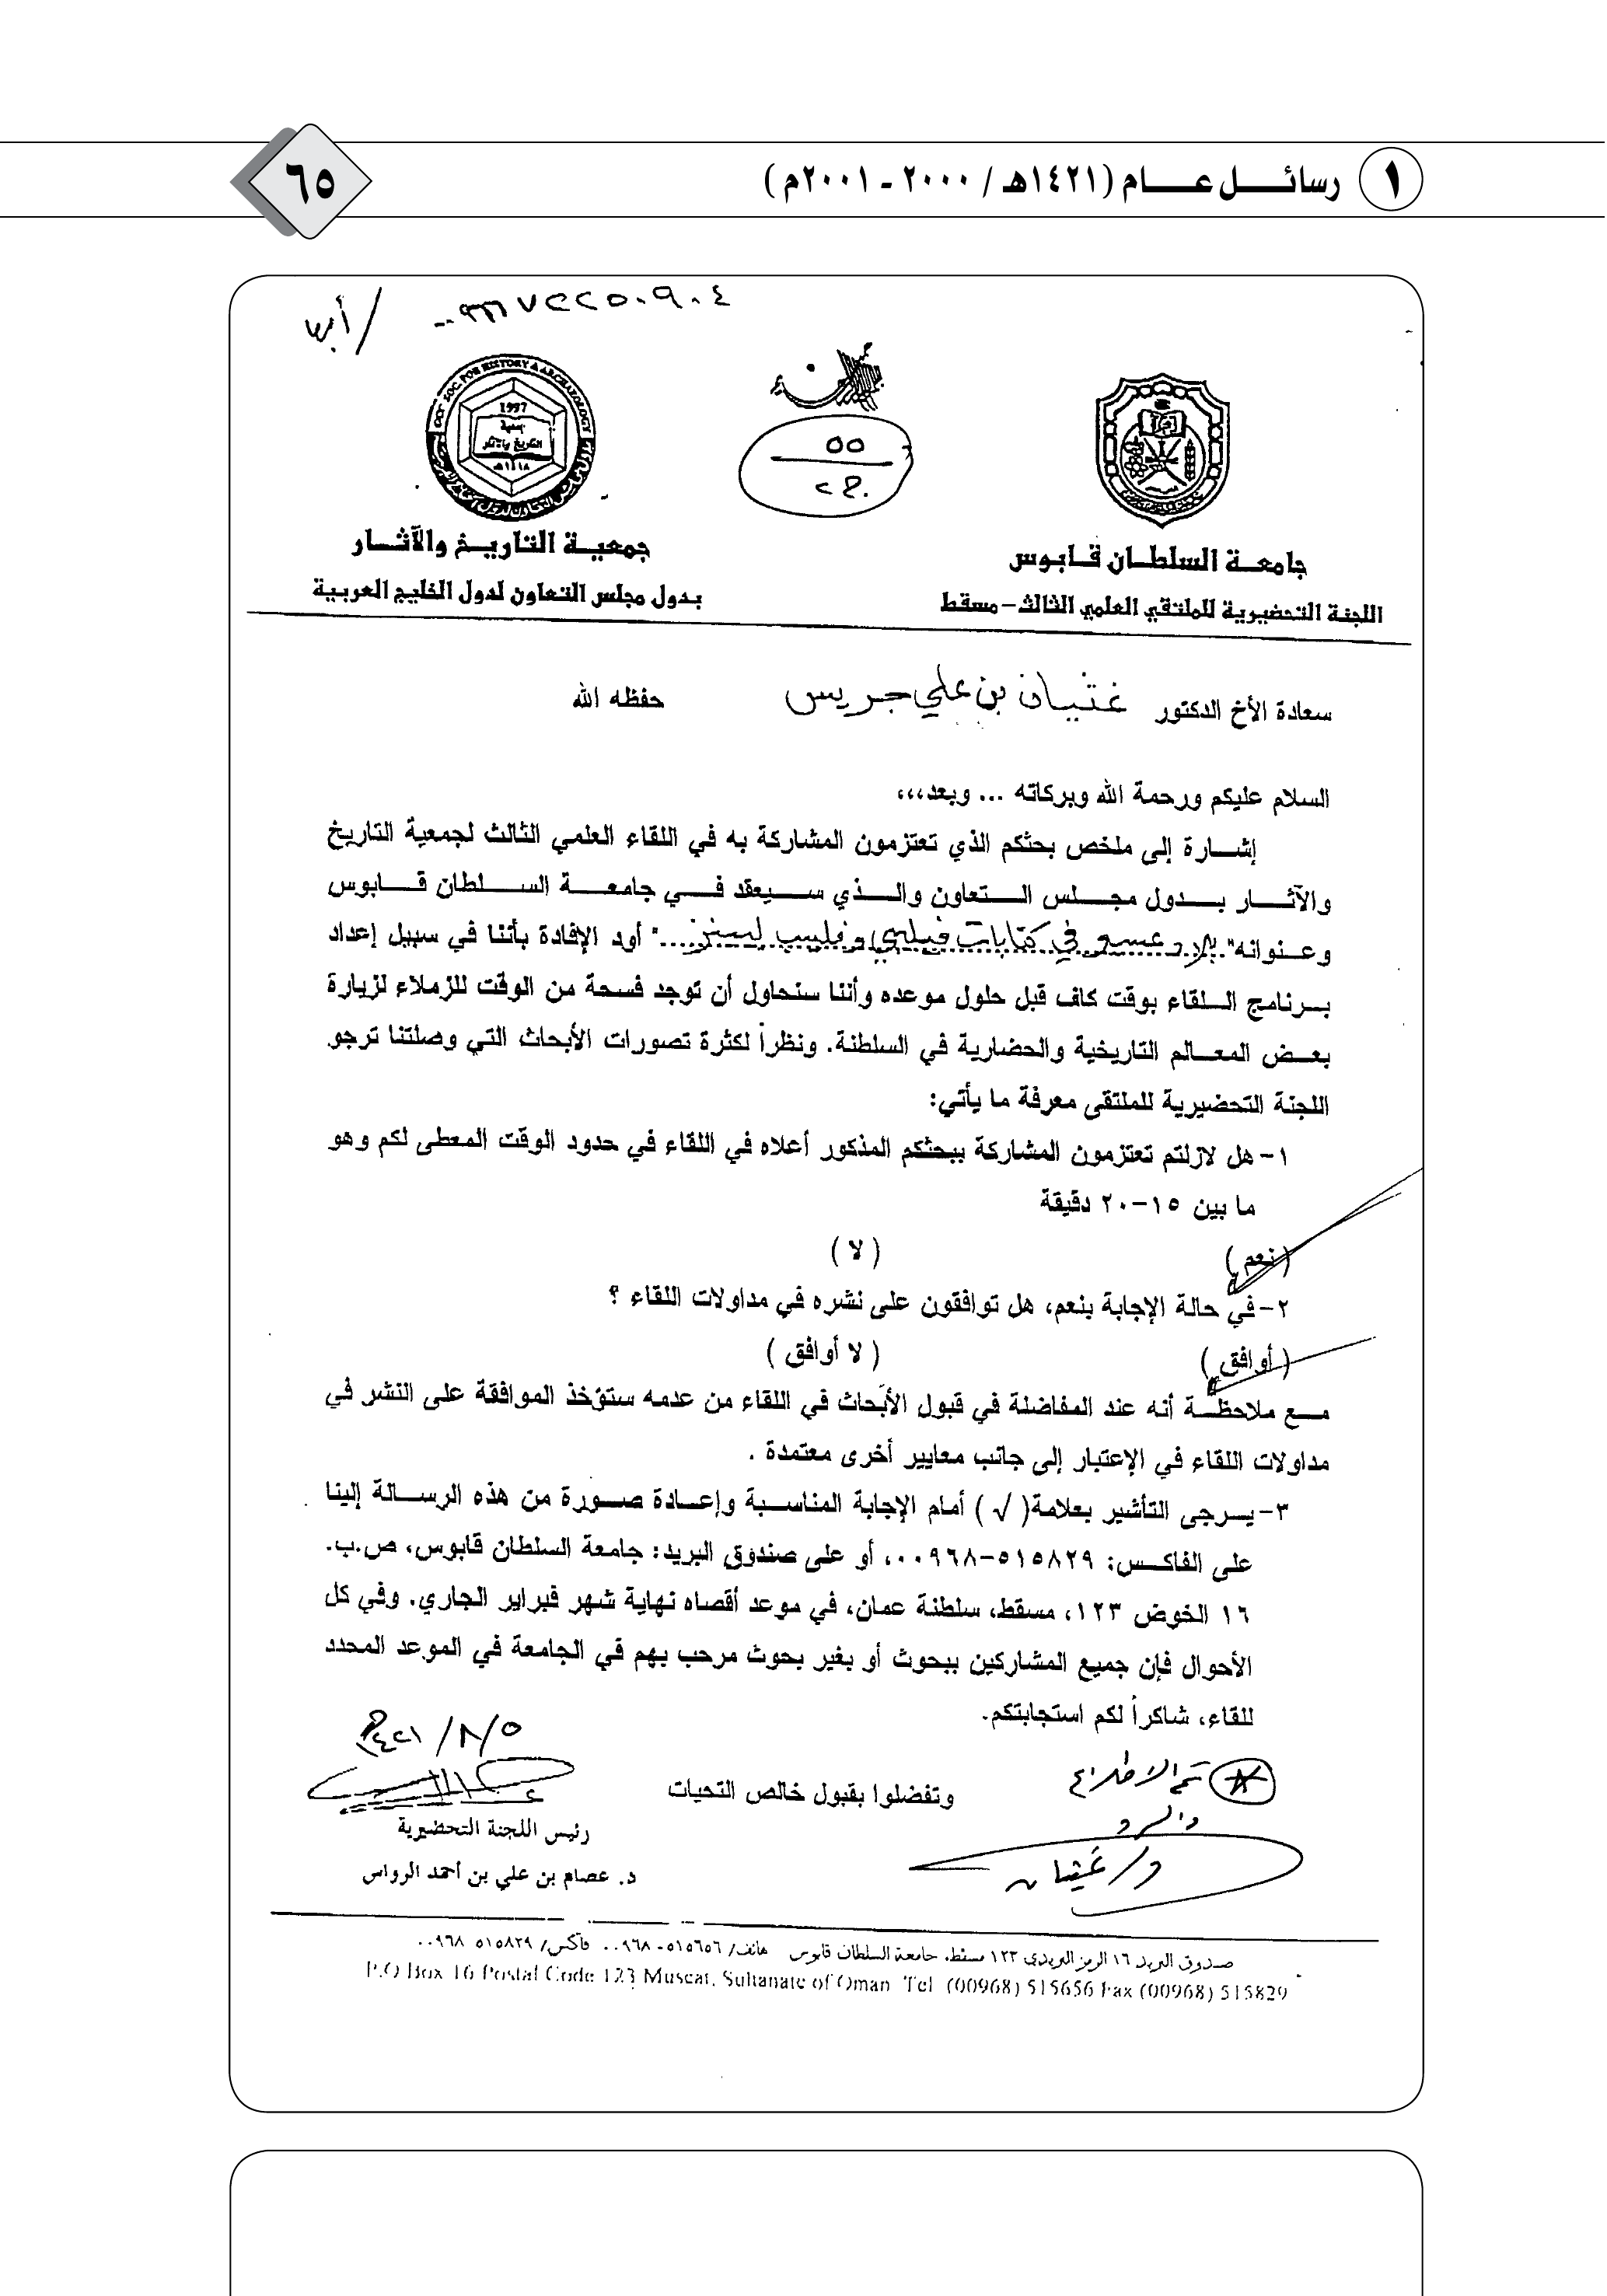 ١ رسائل عام (١٤٢١هـ / ٢٠٠٠ - ٢٠٠١م)
٦٥
٠٠٩٦٦٧٢٢٥٠٩٠٤ / أبها
GCC SOC. FOR HISTORY & ARCHAEOLOGY
1997
جمعية
التاريخ والآثار
١٤١٨هـ
٥٥
جامعة السلطان قابوس
اللجنة التحضيرية للملتقي العلمي الثالث - مسقط
جمعية التاريخ والآثار
بدول مجلس التعاون لدول الخليج العربية
سعادة الأخ الدكتور غثيان بن علي جريس حفظه الله
السلام عليكم ورحمة الله وبركاته ... وبعد،،،
إشارة إلى ملخص بحثكم الذي تعتزمون المشاركة به في اللقاء العلمي الثالث لجمعية التاريخ
والآثار بدول مجلس التعاون والذي سيعقد في جامعة السلطان قابوس
وعنوانه "بلاد عسير في كتابات فيلبي وفليب ليبنز..." أود الإفادة بأننا في سبيل إعداد
برنامج اللقاء بوقت كاف قبل حلول موعده وأننا سنحاول أن توجد فسحة من الوقت للزملاء لزيارة
بعض المعالم التاريخية والحضارية في السلطنة. ونظراً لكثرة تصورات الأبحاث التي وصلتنا ترجو
اللجنة التحضيرية للملتقى معرفة ما يأتي:
١- هل لازلتم تعتزمون المشاركة ببحثكم المذكور أعلاه في اللقاء في حدود الوقت المعطى لكم وهو
ما بين ١٥-٢٠ دقيقة
(نعم) ( لا )
٢- في حالة الإجابة بنعم، هل توافقون على نشره في مداولات اللقاء ؟
( أوافق ) ( لا أوافق )
مع ملاحظة أنه عند المفاضلة في قبول الأبحاث في اللقاء من عدمه ستؤخذ الموافقة على النشر في
مداولات اللقاء في الإعتبار إلى جانب معايير أخرى معتمدة .
٣- يرجى التأشير بعلامة( √ ) أمام الإجابة المناسبة وإعادة صورة من هذه الرسالة إلينا
على الفاكس: ٥١٥٨٢٩-٠٠٩٦٨، أو على صندوق البريد: جامعة السلطان قابوس، ص.ب.
١٦ الخوض ١٢٣، مسقط، سلطنة عمان، في موعد أقصاه نهاية شهر فبراير الجاري. وفي كل
الأحوال فإن جميع المشاركين ببحوث أو بغير بحوث مرحب بهم في الجامعة في الموعد المحدد
للقاء، شاكراً لكم استجابتكم.
وتفضلوا بقبول خالص التحيات
تم الاطلاع
والرد
د/ غيثان
٥/٨/١٤٢١
رئيس اللجنة التحضيرية
د. عصام بن علي بن أحمد الرواس
صندوق البريد ١٦ الرمز البريدي ١٢٣ مسقط، جامعة السلطان قابوس هاتف/ ٥١٥٦٥٦-٠٠٩٦٨ فاكس/ ٥١٥٨٢٩ ٠٠٩٦٨
P.O Box 16 Postal Code 123 Muscat, Sultanate of Oman Tel (00968) 515656 Fax (00968) 515829